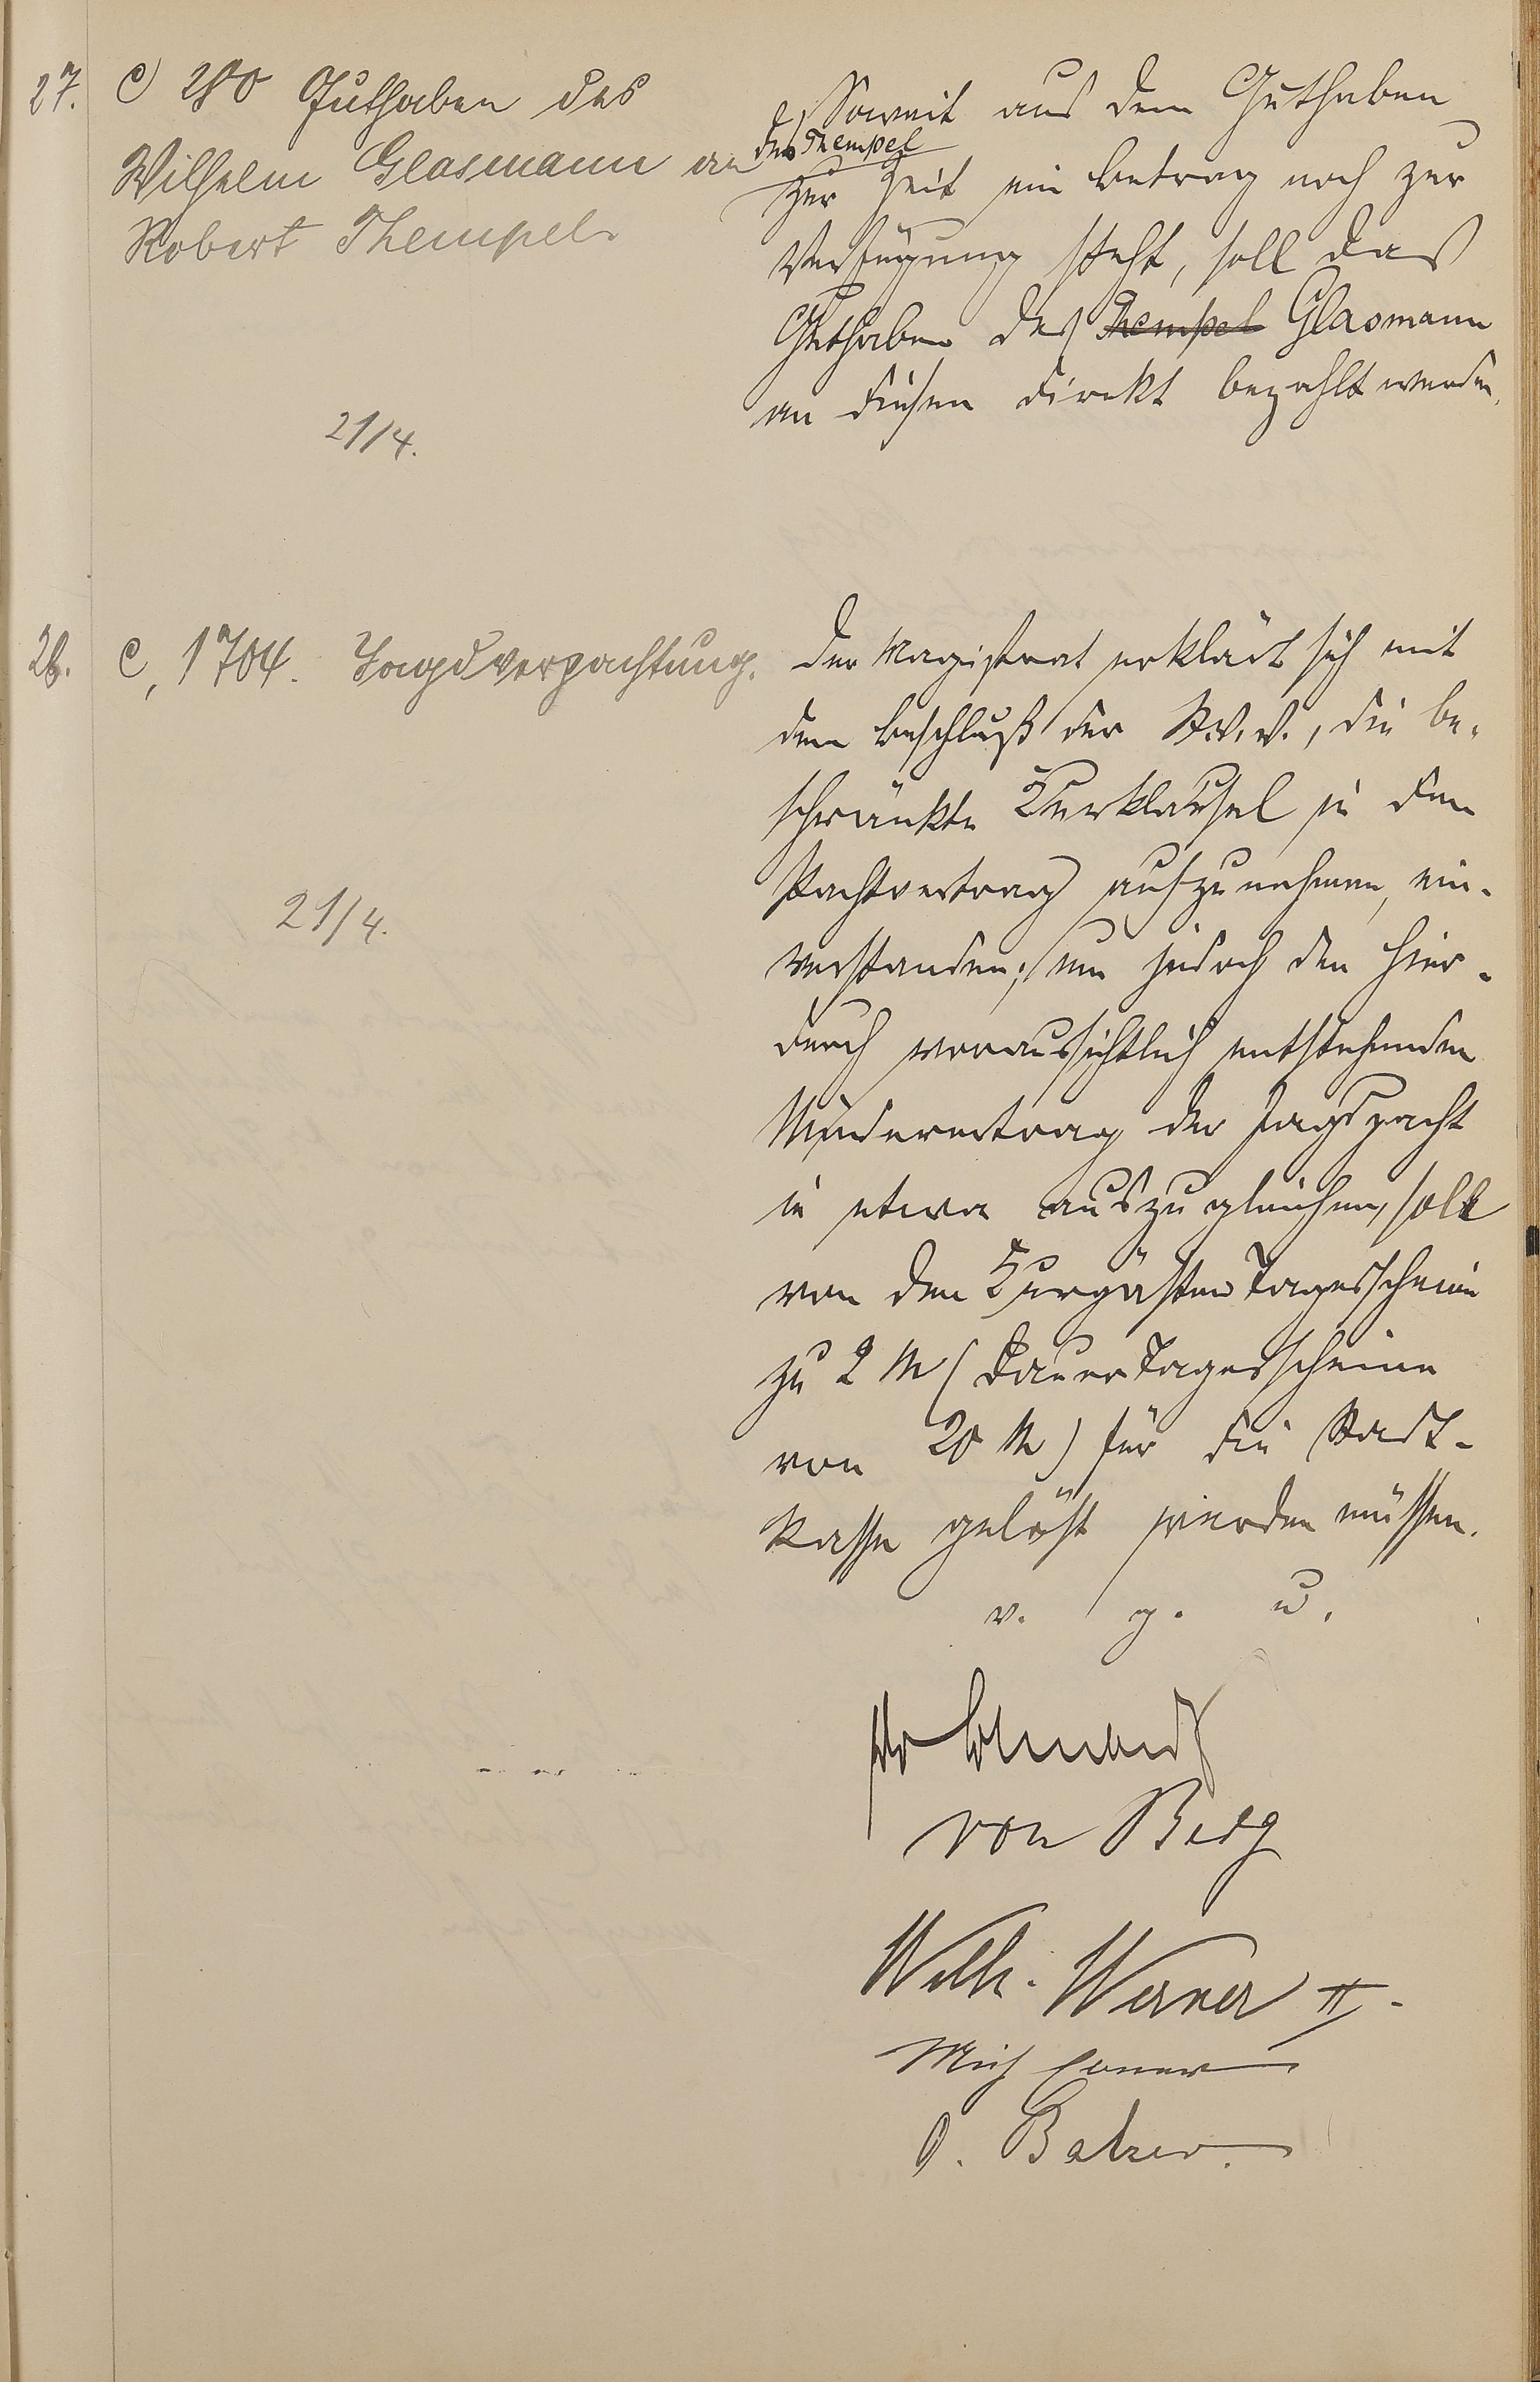 27. C) 280 Guthaben des
Wilhelm Glasmann an
Robert Thempel.
21/4.
Soweit aus dem Guthaben
des Thempel
zur Zeit ein Betrag noch zur
Verfügung steht, soll das
Guthaben des Thempel Glasmann
an diesen direkt bezahlt werden.
28. C, 1704. Jagdverpachtung.
21/4.
Der Magistrat erklärt sich mit
dem Beschluß der St.V.V., die be-
schränkte Kurklausel in den
Pachtvertrag aufzunehmen, ein-
verstanden; um jedoch den hier-
durch voraussichtlich entstehenden
Minderertrag der Jagdpacht
in etwa auszugleichen, soll
von den Kurgästen Tagesscheine
zu 2 M (Dauer Tagesscheine
von 20 M) für die Stadt-
kasse gelöst werden müssen.
v. g. u.
von Berg
Wilh. Werner II.
Mich
O. Balzer.